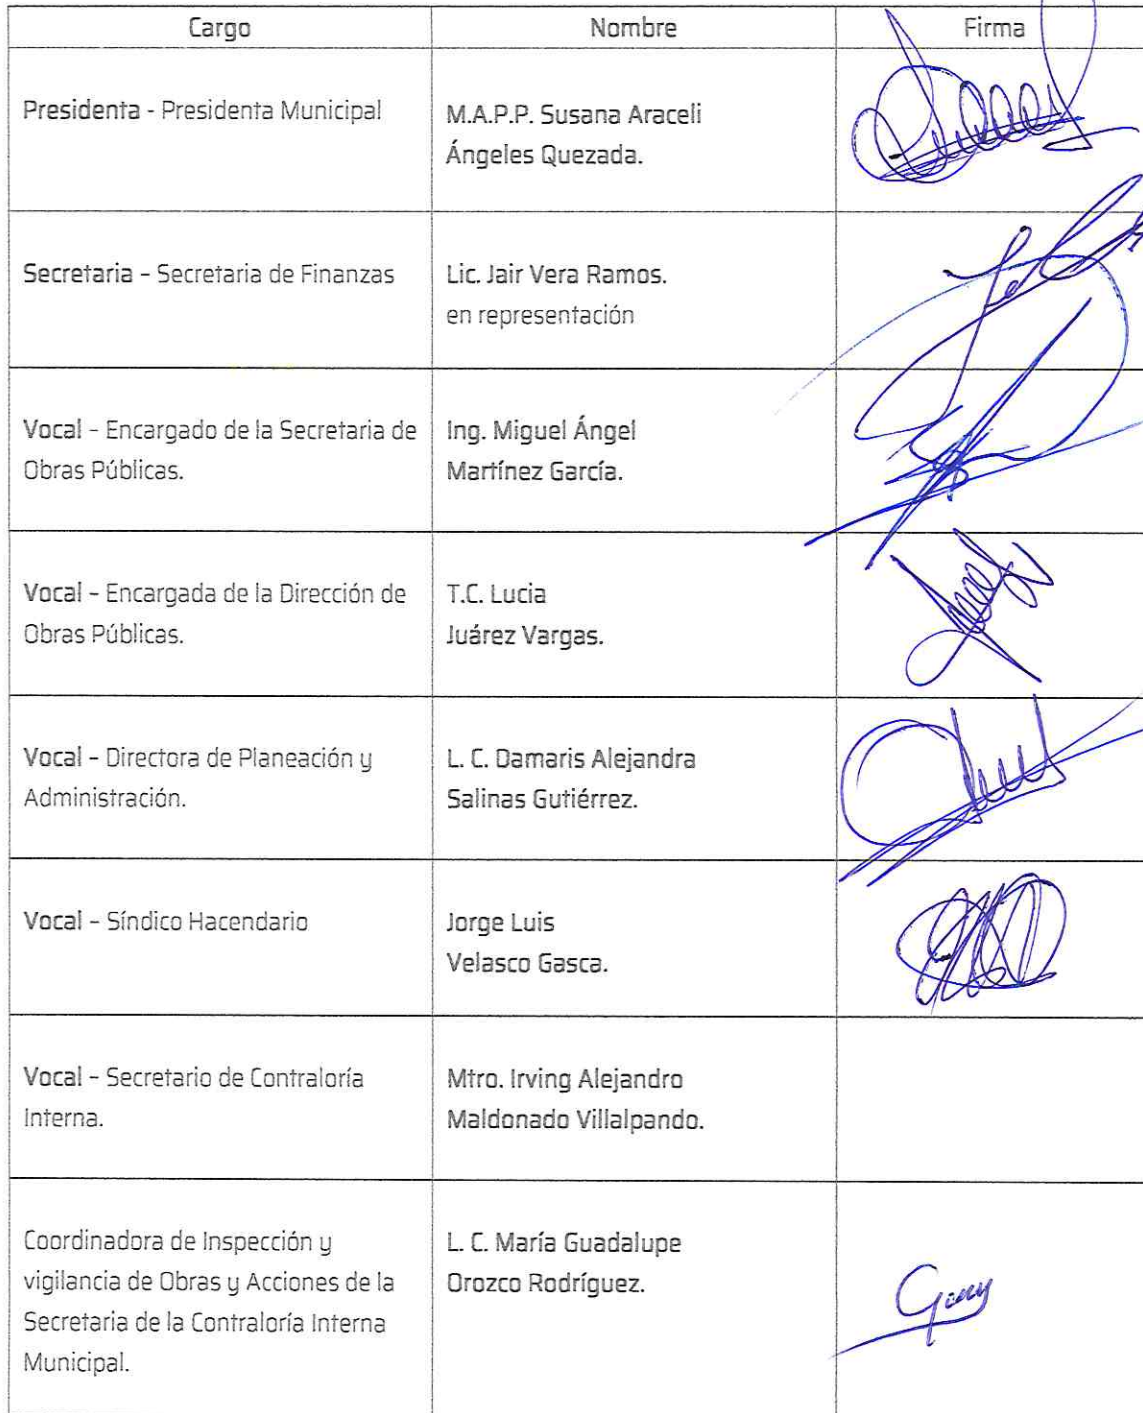 Cargo Nombre Firma
Presidenta - Presidenta Municipal
M.A.P.P. Susana Araceli
Ángeles Quezada.
Secretaria - Secretaria de Finanzas
Lic. Jair Vera Ramos.
en representación
Vocal - Encargado de la Secretaria de
Obras Públicas.
Ing. Miguel Ángel
Martínez García.
Vocal - Encargada de la Dirección de
Obras Públicas.
T.C. Lucia
Juárez Vargas.
Vocal - Directora de Planeación y
Administración.
L. C. Damaris Alejandra
Salinas Gutiérrez.
Vocal - Síndico Hacendario
Jorge Luis
Velasco Gasca.
Vocal - Secretario de Contraloría
Interna.
Mtro. Irving Alejandro
Maldonado Villalpando.
Coordinadora de Inspección y
vigilancia de Obras y Acciones de la
Secretaria de la Contraloría Interna
Municipal.
L. C. María Guadalupe
Orozco Rodríguez.